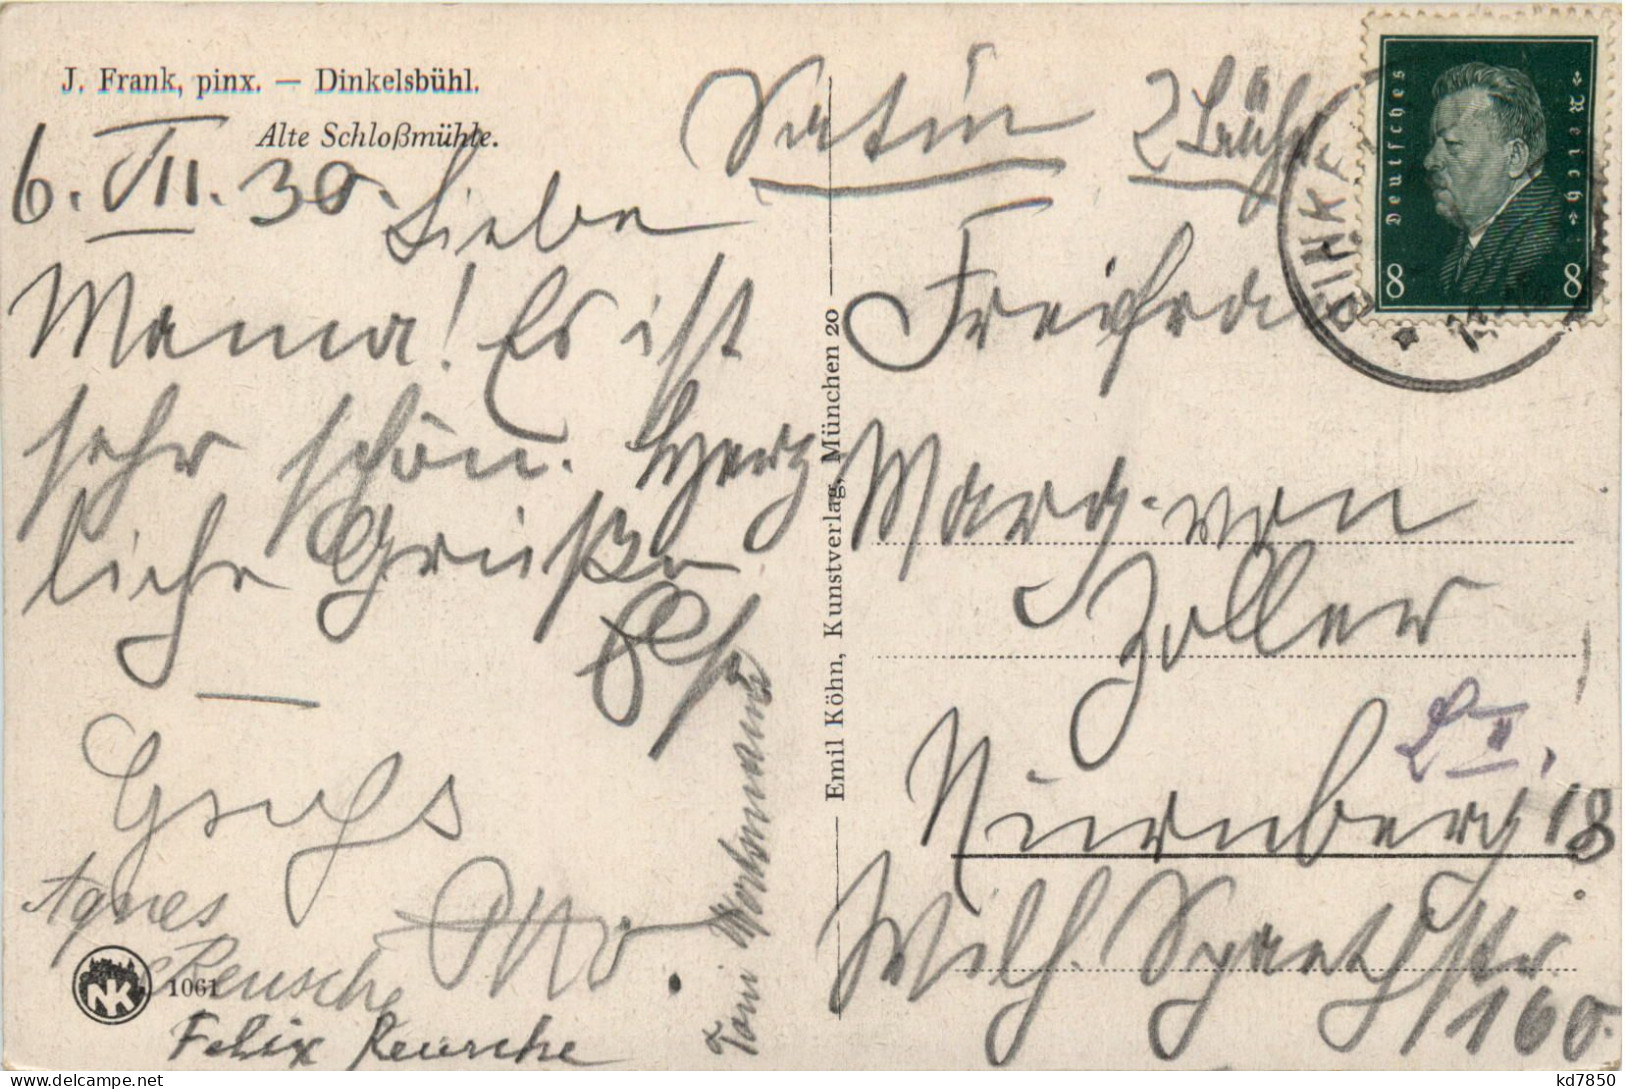 J. Frank, pinx. — Dinkelsbühl.
Alte Schloßmühle.
6. VII. 30. Liebe
Mama! Es ist
sehr schön. Herz
liche Grüße
Gruß
Otto.
Agnes
Reusche
Felix Reusche
Toni Workmann
NK
1061
Emil Köhn, Kunstverlag, München 20
Deutsches Reich
8 8
DINKE
Freifrau
Marg. von
Zoller
Nürnberg 18
Wilh. Spaethstr
160.
kd7850